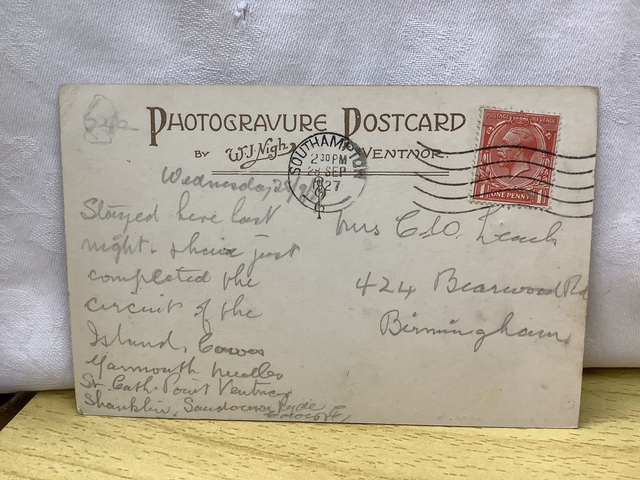 PHOTOGRAVURE POSTCARD
BY W.J. Nigh VENTNOR.
POSTAGE REVENUE
ONE PENNY
SOUTHAMPTON
2 30 PM
28 SEP
1927
Wednesday
Stayed here last
night & have just
completed the
circuit of the
Island, Cowes
Yarmouth Needles
St. Cath. Point Ventnor
Shanklin, Sandown Ryde
Mrs C
424 Bearwood Rd
Birmingham